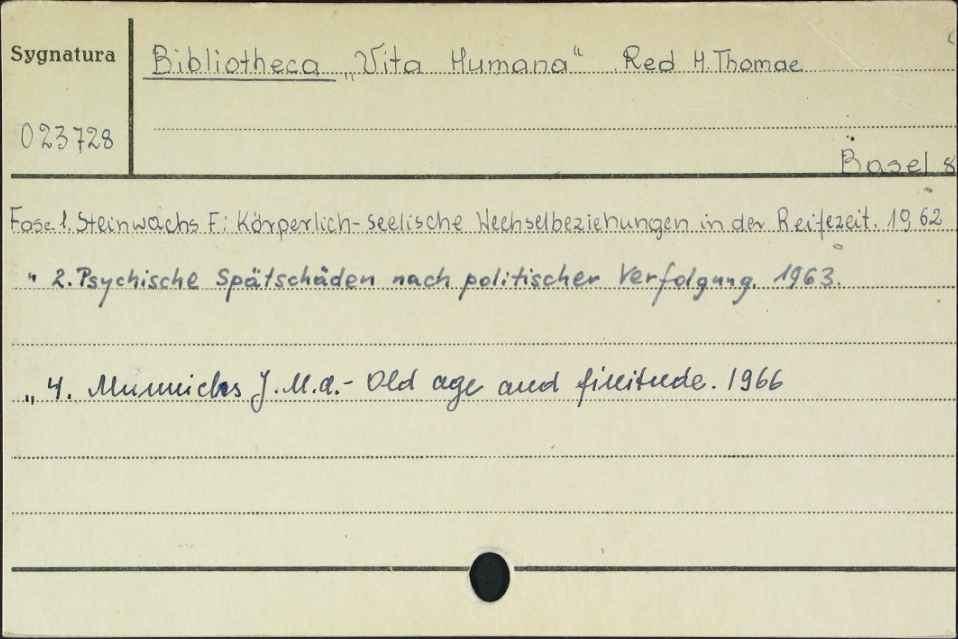 Sygnatura
Bibliotheca „Vita Humana“ Red H. Thomae
023728
Basel 8
Fasc 1. Steinwachs F: Körperlich-seelische Wechselbeziehungen in der Reifezeit. 1962
" 2. Psychische Spätschäden nach politischer Verfolgung. 1963.
„ 4. Munnichs J.M.A.- Old age and finitude. 1966